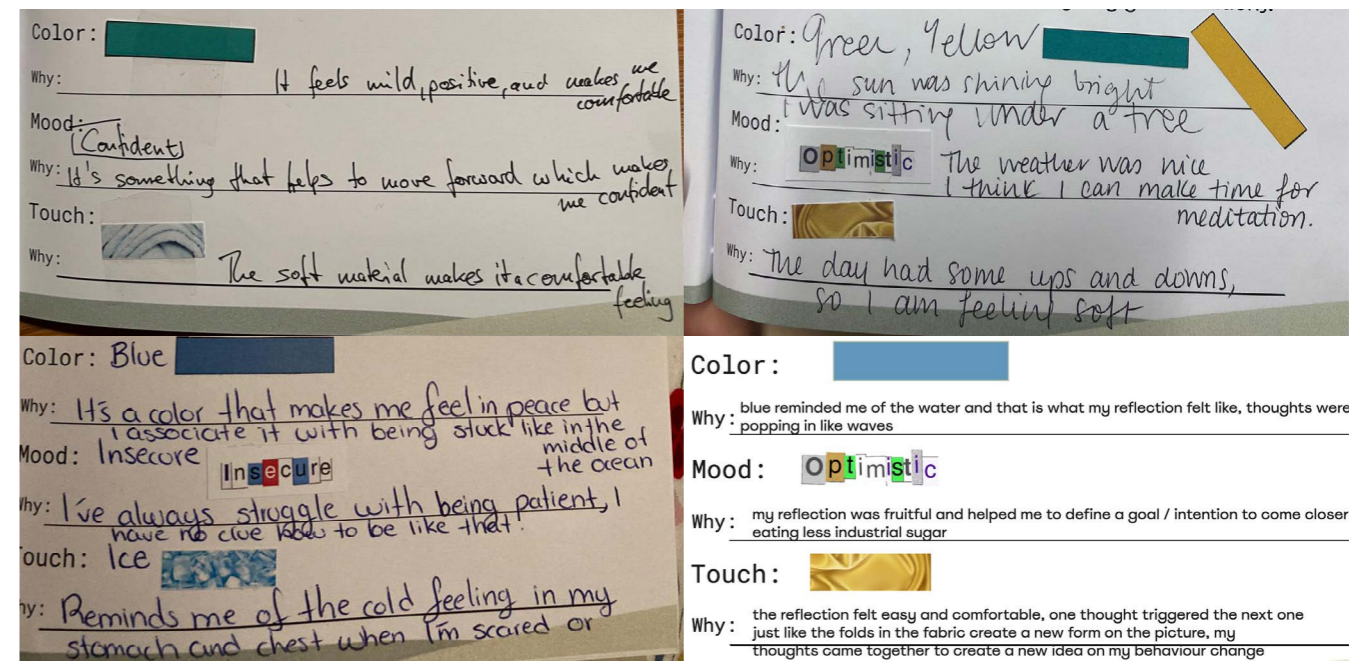 Color:
Why: It feels mild, positive, and makes me
comfortable
Mood:
(Confident)
Why: It's something that helps to move forward which makes
me confident
Touch:
Why: The soft material makes it a comfortable
feeling
Color: Green, Yellow
Why: The sun was shining bright
I was sitting under a tree
Mood: Optimistic
Why: The weather was nice
I think I can make time for
meditation.
Touch:
Why: The day had some ups and downs,
so I am feeling soft
Color: Blue
Why: It's a color that makes me feel in peace but
I associate it with being stuck like in the
middle of
the ocean
Mood: Insecure
Insecure
Why: I've always struggle with being patient, I
have no clue how to be like that!
Touch: Ice
Why: Reminds me of the cold feeling in my
stomach and chest when I'm scared or
Color:
Why: blue reminded me of the water and that is what my reflection felt like, thoughts were
popping in like waves
Mood: Optimistic
Why: my reflection was fruitful and helped me to define a goal / intention to come closer
eating less industrial sugar
Touch:
Why: the reflection felt easy and comfortable, one thought triggered the next one
just like the folds in the fabric create a new form on the picture, my
thoughts came together to create a new idea on my behaviour change